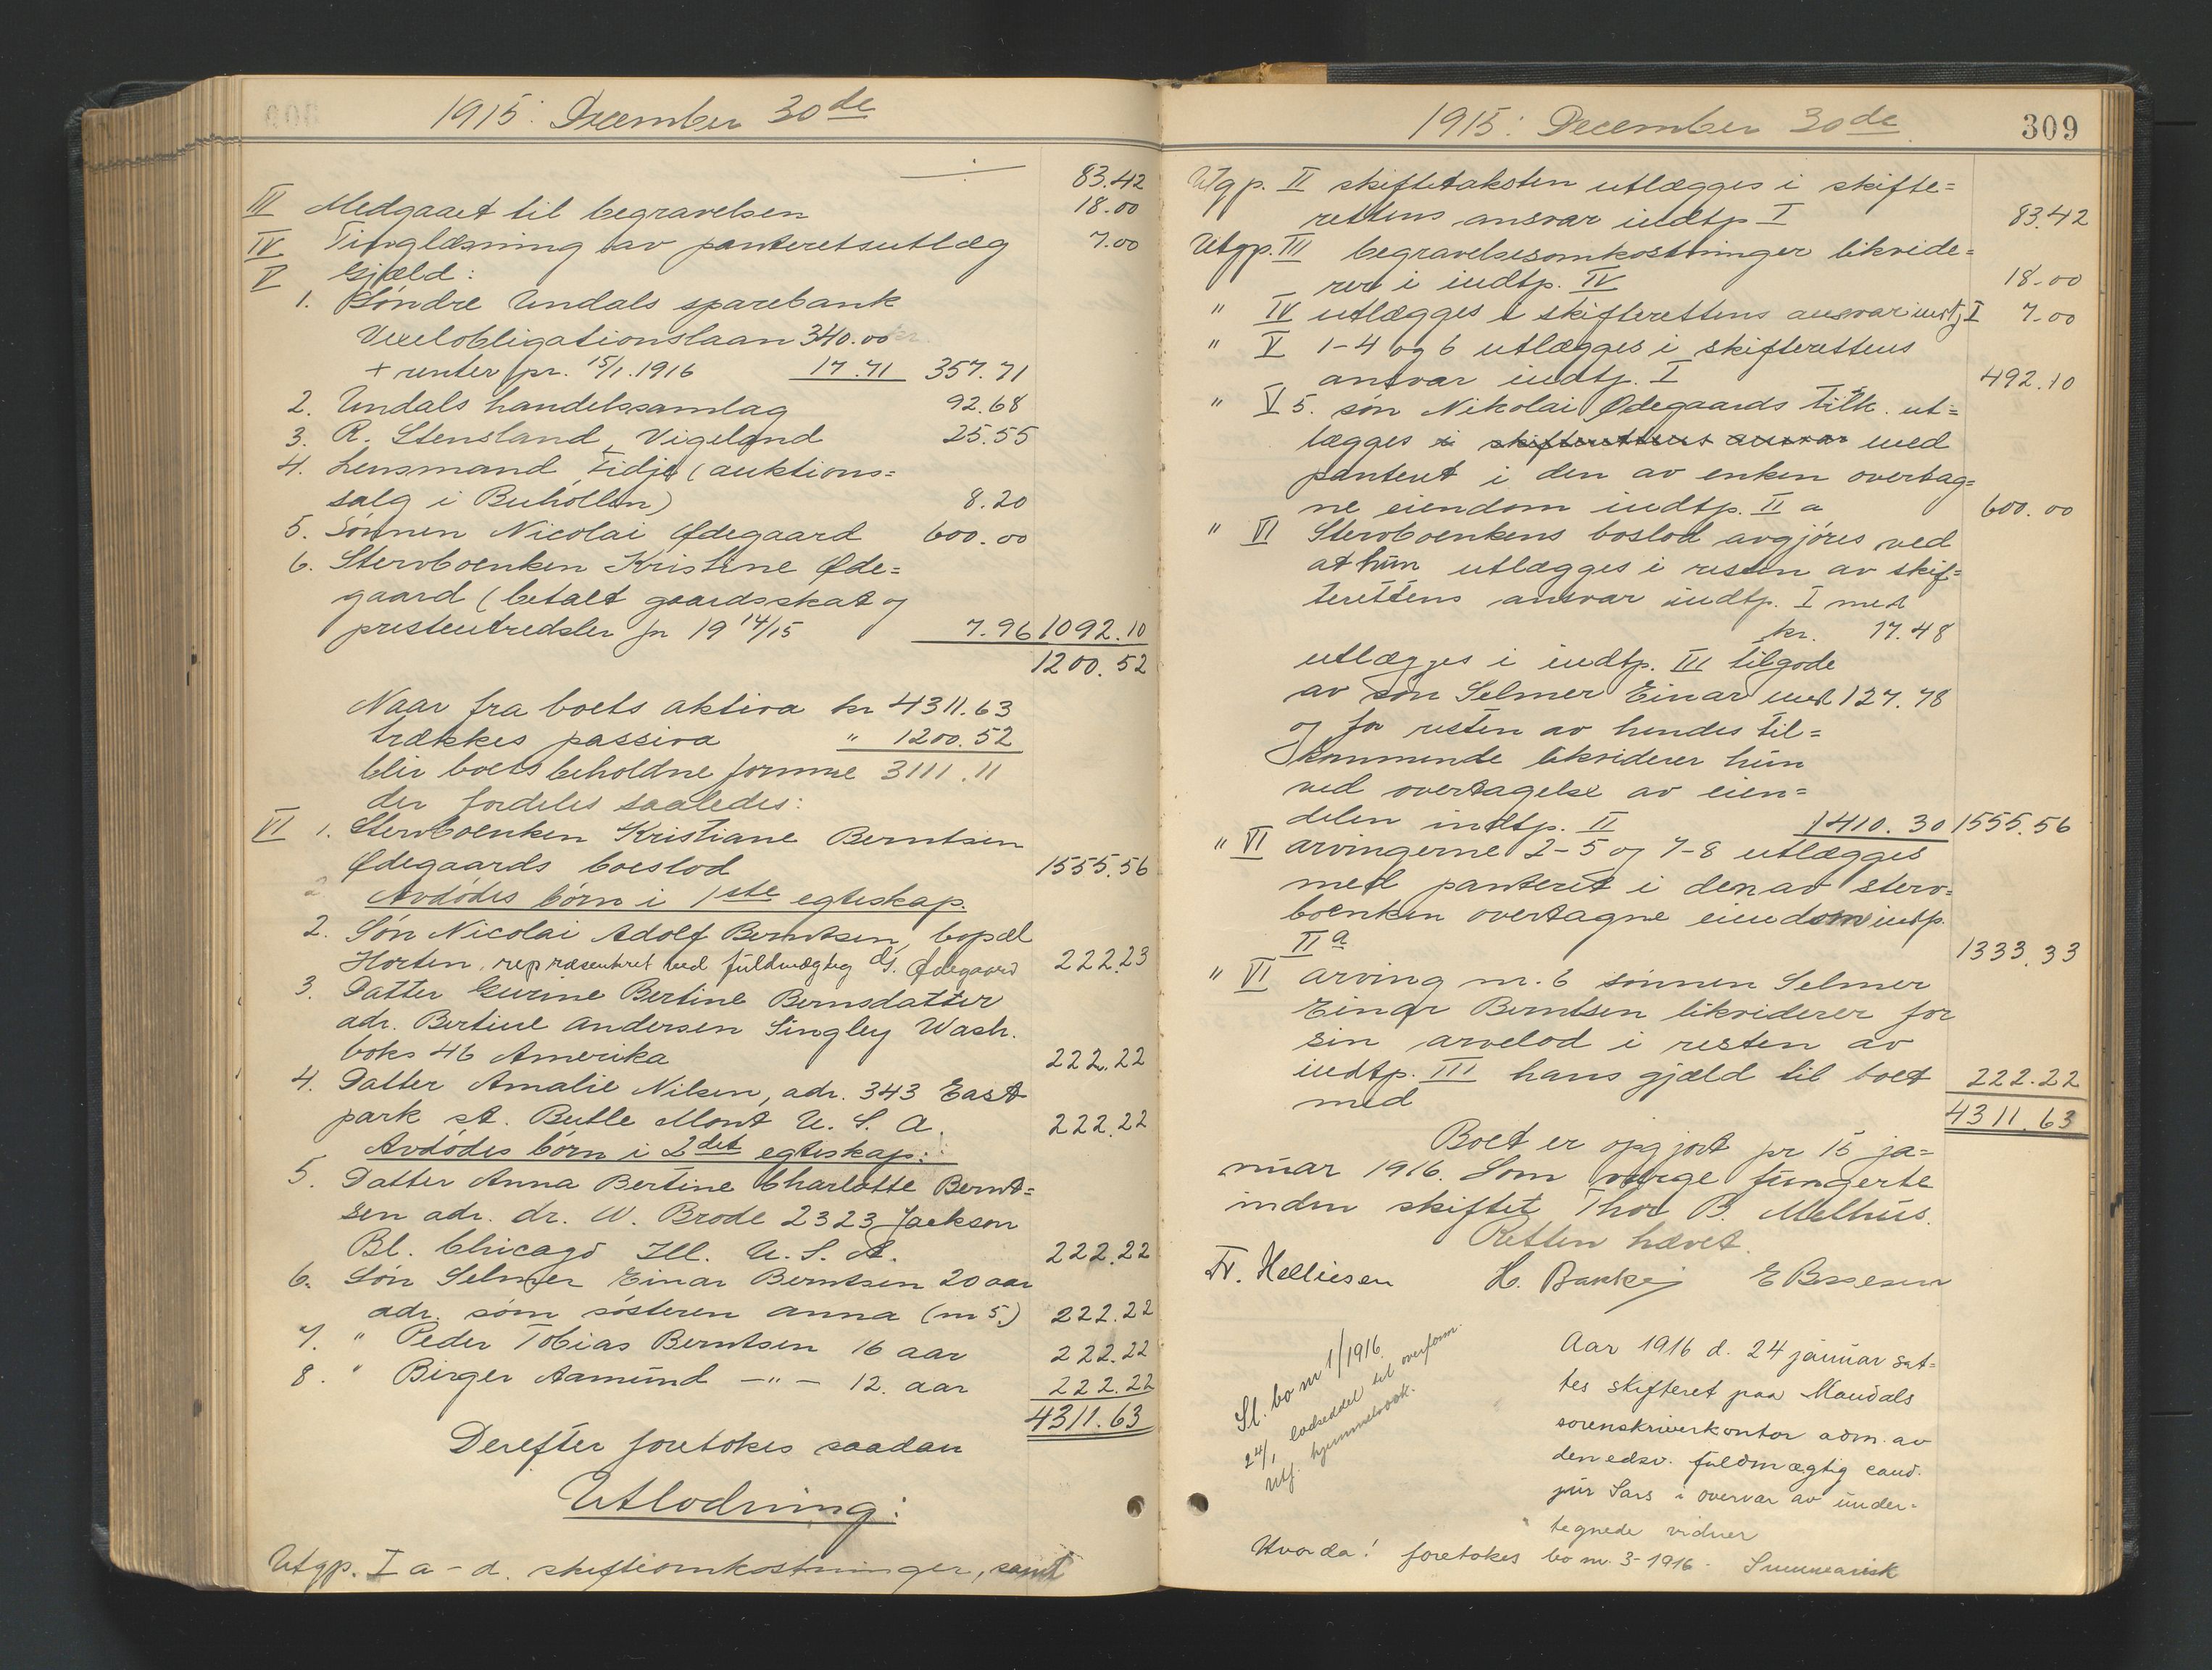 1915: December 30de
÷ 83.42
III Medgaaet til begravelsen 18.00
IV Tinglæsning av panteretsutlæg 7.00
V Gjæld:
1. Søndre Undals sparebank
Vexelobligationslaan 340.00
+ renter pr. 15/1.1916 17.71 357.71
2. Undals handelssamlag 92.68
3. R. Stensland, Vigeland 25.55
4. Lensmand Tidje (auktions=
salg i Buhollen) 8.20
5. Sønnen Nicolai Ødegaard 600.00
6. Stervboenken Kristine Øde=
gaard (betalt gaardsskat og
presteutredsler for 19 14/15 7.96 1092.10
1200.52
Naar fra boets aktiva kr 4311.63
trækkes passiva " 1200.52
blir boets beholdne formue 3111.11
der fordeles saaledes:
VI 1. Stervboenken Kristiane Berntsen
Ødegaards boeslod 1555.56
Avdødes børn i 1ste egteskap.
2. Søn Nicolai Adolf Berntsen, bopæl
Horten, repræsenteret ved fuldmægtig O. Ødegaard 222.23
3. Datter Gurine Bertine Berntsdatter
adr. Bertine Andersen Singley Wash.
boks 46 Amerika 222.22
4. Datter Amalie Nilsen, adr. 343 East
park st. Butle Mont U. S. A. 222.22
Avdødes børn i 2det egteskap:
5. Datter Anna Bertine Charlotte Bernt=
sen adr. dr. W. Brode 2323 Jackson
Bl. Chicago Ill. U. S. A. 222.22
6. Søn Selmer Einar Berntsen 20 aar
adr. som søsteren Anna (nr 5.) 222.22
7. " Peder Tobias Berntsen 16 aar 222.22
8. " Birger Aamund —"— 12. aar 222.22
4311.63
Derefter foretokes saadan
Utlodning:
Utgp. I a-d. skifteomkostninger, samt
1915: December 30de 309
Utgp. II skiftetaksten utlægges i skifte=
rettens ansvar indtp I 83.42
Utgp. III begravelsesomkostninger likvide=
rer i indtp. IV 18.00
" IV utlægges i skifterettens ansvar indtp I 7.00
" V 1-4 og 6 utlægges i skifterettens
ansvar indtp. I 492.10
" V 5. søn Nikolai Ødegaards tilk. ut=
lægges i skifterettens ansvar med
panteret i den av enken overtag=
ne eiendom indtp. II a 600.00
" VI Stervboenkens boslod avgjøres ved
at hun utlægges i resten av skif=
terettens ansvar indtp. I med
kr. 17.48
utlægges i indtp. III tilgode
av søn Selmer Einar med 127.78
og for resten av hendes til=
kommende likviderer hun
ved overtagelse av eien=
delen indtp. II 1410.30 1555.56
" VI arvingerne 2-5 og 7-8 utlægges
med panteret i den av sterv=
boenken overtagne eiendom indtp.
II a 1333.33
" VI arving nr. 6 sønnen Selmer
Einar Berntsen likviderer for
sin arvelod i resten av
indtp. III hans gjæld til boet
med 222.22
4311.63
Boet er opgjort pr 15 ja=
nuar 1916. Som verge fungerte
inden skiftet Thor B. Melhus.
Retten hævet.
Fr. Helliesen H. Banke
Sl. bo nr 1/1916
24/1 lodseddel til overform.
Utf. hjemmelsdok.
Aar 1916 d. 24 januar sat=
tes skifteret paa Mandals
sorenskriverkontor adm. av
den edsv. fuldmægtig cand.
jur Sars i overvær av under=
tegnede vidner
Hvorda! foretokes bo nr. 3-1916. Summarisk